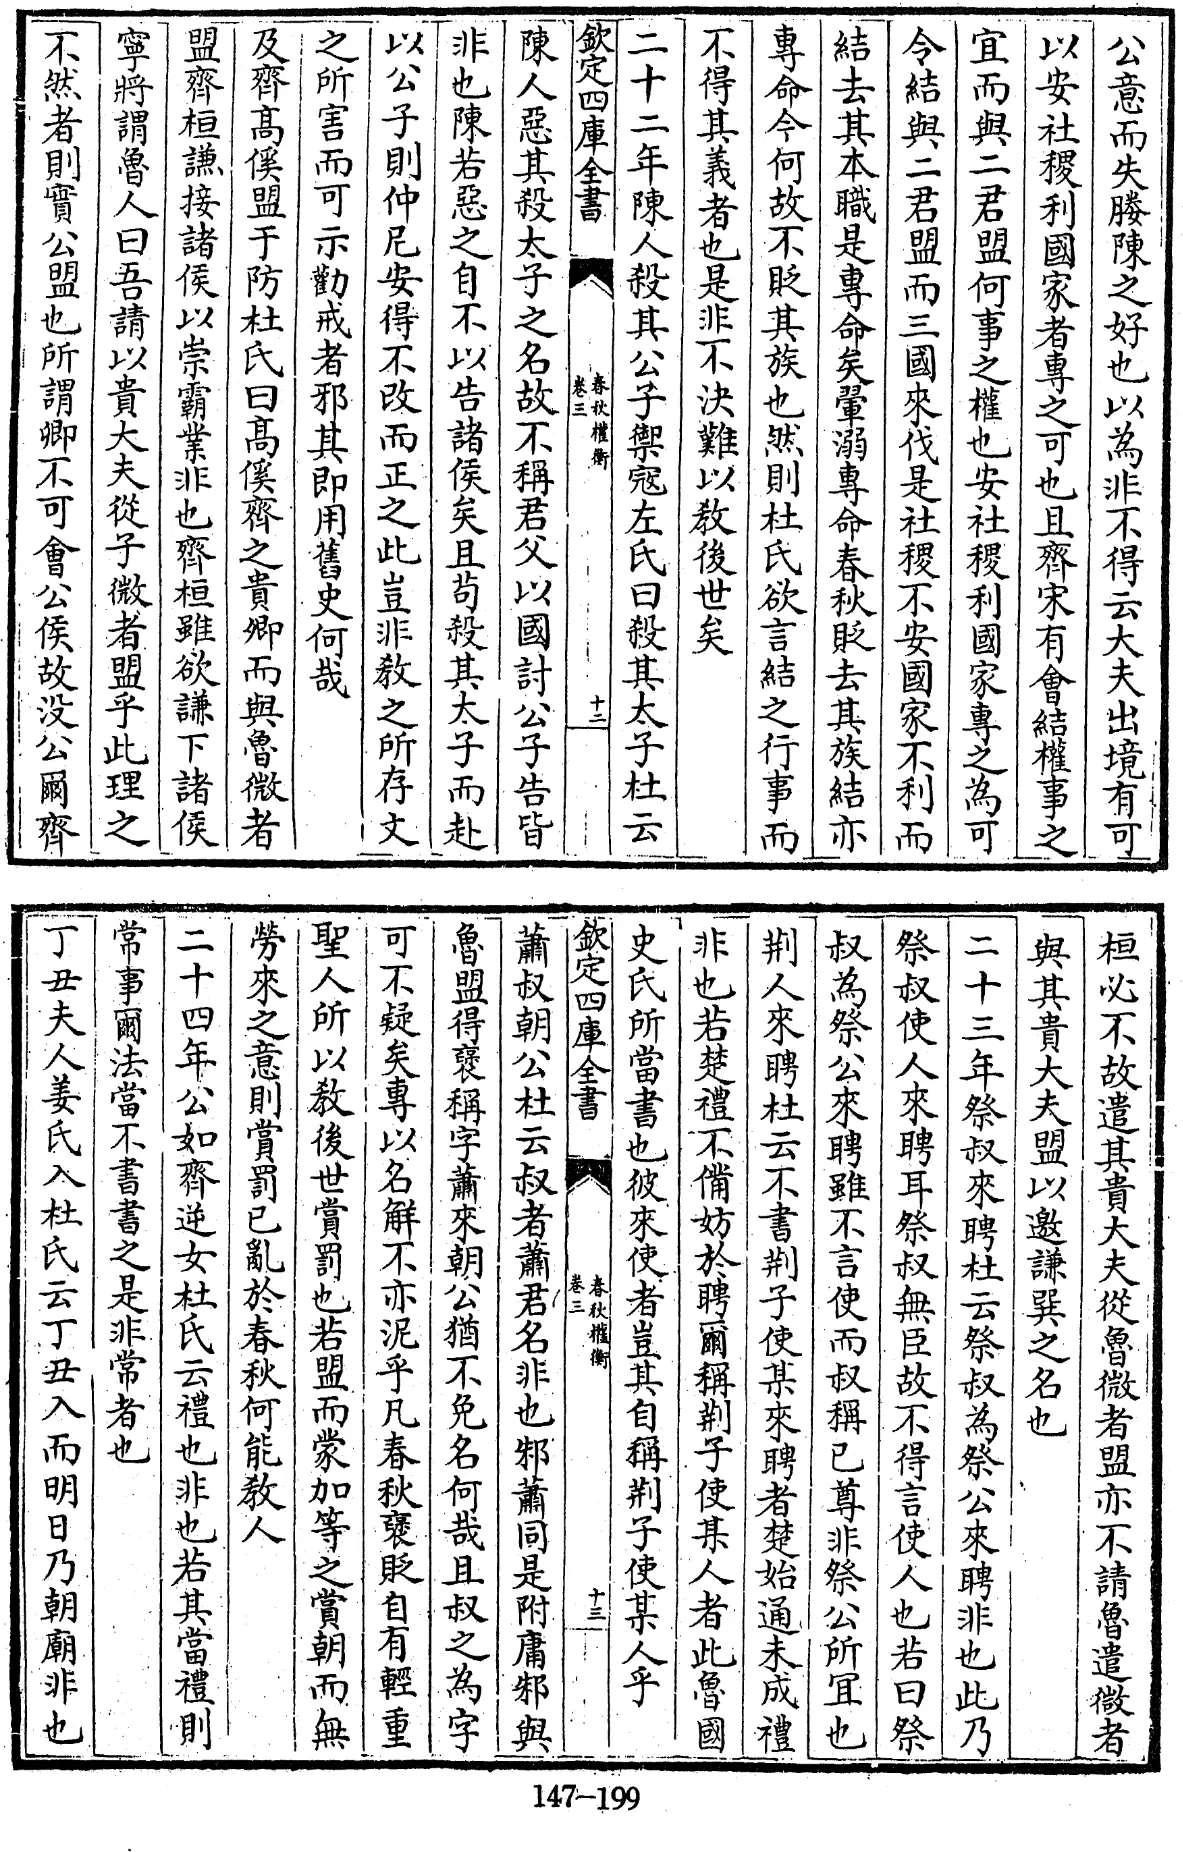 公意而失媵陳之好也以為非不得云大夫出境有可
以安社稷利國家者專之可也且齊宋有會結權事之
宜而與二君盟何事之權也安社稷利國家專之為可
令結與二君盟而三國來伐是社稷不安國家不利而
結去其本職是專命矣翬溺專命春秋貶去其族結亦
專命今何故不貶其族也然則杜氏欲言結之行事而
不得其義者也是非不決難以教後世矣
二十二年陳人殺其公子禦寇左氏曰殺其太子杜云
欽定四庫全書
春秋權衡
卷三
十二
陳人惡其殺太子之名故不稱君父以國討公子告皆
非也陳若惡之自不以告諸侯矣且苟殺其太子而赴
以公子則仲尼安得不改而正之此豈非教之所存文
之所害而可示勸戒者邪其即用舊史何哉
及齊高傒盟于防杜氏曰高傒齊之貴卿而與魯微者
盟齊桓謙接諸侯以崇霸業非也齊桓雖欲謙下諸侯
寧將謂魯人曰吾請以貴大夫從子微者盟乎此理之
不然者則實公盟也所謂卿不可會公侯故没公爾齊
桓必不故遣其貴大夫從魯微者盟亦不請魯遣微者
與其貴大夫盟以邀謙巽之名也
二十三年祭叔來聘杜云祭叔為祭公來聘非也此乃
祭叔使人來聘耳祭叔無臣故不得言使人也若曰祭
叔為祭公來聘雖不言使而叔稱已尊非祭公所宜也
荆人來聘杜云不書荆子使某來聘者楚始通未成禮
非也若楚禮不備妨於聘爾稱荆子使某人者此魯國
史氏所當書也彼來使者豈其自稱荆子使某人乎
欽定四庫全書
春秋權衡
卷三
十三
蕭叔朝公杜云叔者蕭君名非也邾蕭同是附庸邾與
魯盟得褒稱字蕭來朝公猶不免名何哉且叔之為字
可不疑矣專以名解不亦泥乎凡春秋褒貶自有輕重
聖人所以教後世賞罰也若盟而蒙加等之賞朝而無
勞來之意則賞罰已亂於春秋何能教人
二十四年公如齊逆女杜氏云禮也非也若其當禮則
常事爾法當不書書之是非常者也
丁丑夫人姜氏入杜氏云丁丑入而明日乃朝廟非也
147-199